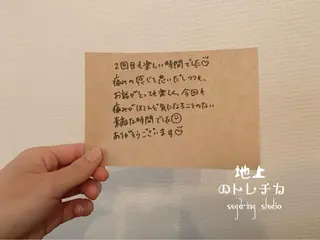 2回目も楽しい時間でした
痛みの感じを思いだしつつも、
お話がとっても楽しく、今回も
痛みがほとんど気になることのない
素敵な時間でした
ありがとうございます
地上
のトレチカ
sugaring studio